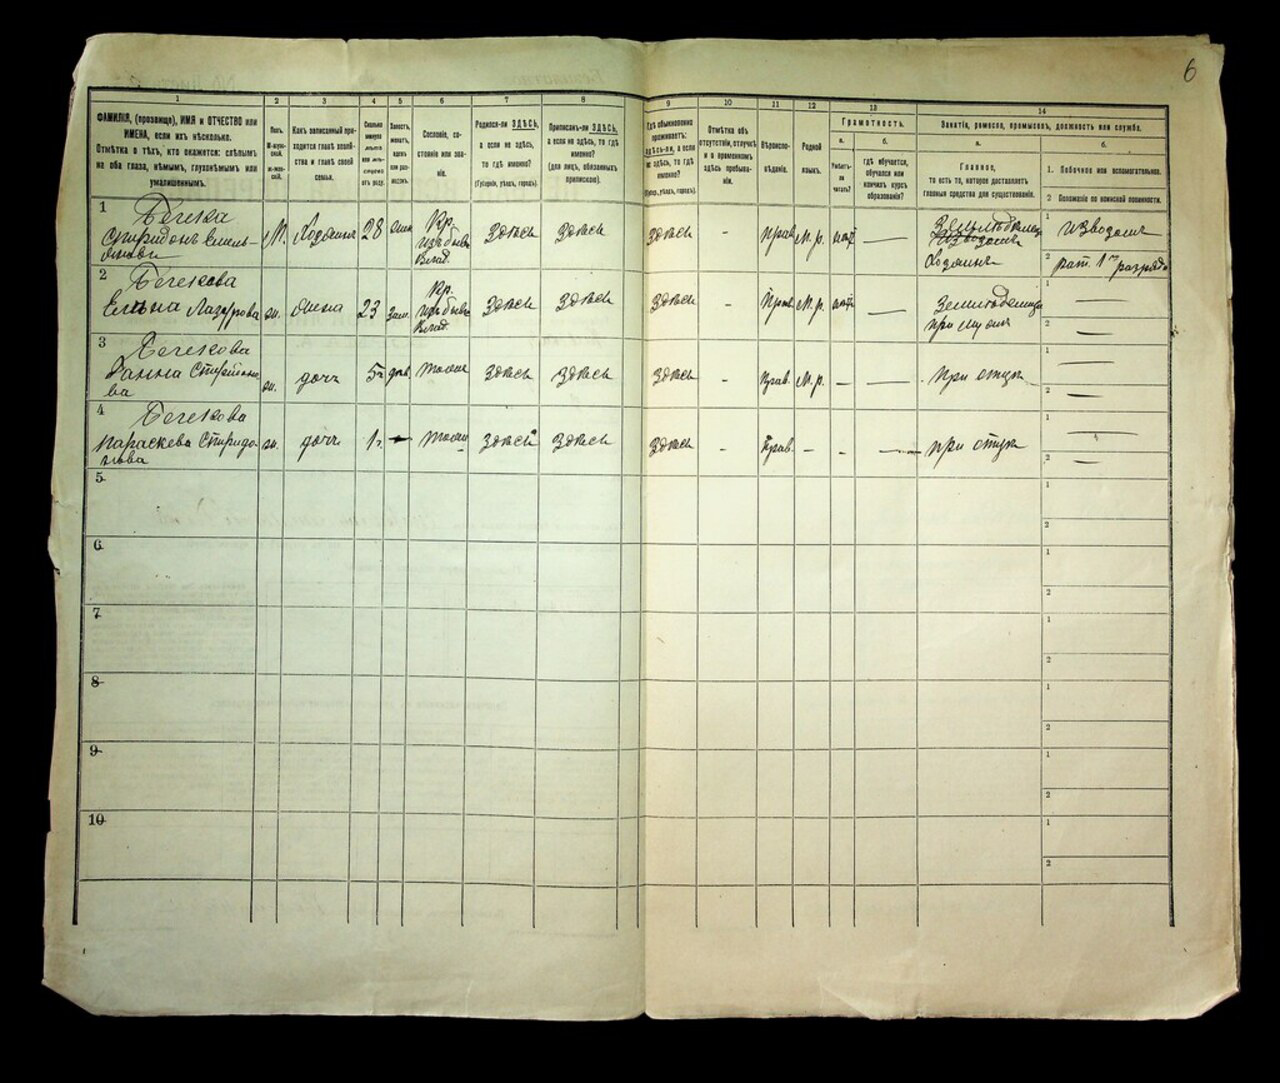 6
1
2
3
4
5
6
7
8
9
10
11
12
13
14
ФАМИЛІЯ, (прозвище), ИМЯ и ОТЧЕСТВО или
ИМЕНА, если ихъ нѣсколько.
Отмѣтка о тѣхъ, кто окажется: слѣпымъ
на оба глаза, нѣмымъ, глухонѣмымъ или
умалишеннымъ.
Полъ.
М-муж-
ской.
Ж-жен-
скій.
Какъ записанный при-
ходится главѣ хозяй-
ства и главѣ своей
семьи.
Сколько
минуло
лѣтъ
или мѣ-
сяцевъ
отъ роду.
Холостъ,
женатъ,
вдовъ
или раз-
веденъ.
Сословіе, со-
стояніе или зва-
ніе.
Родился-ли ЗДѢСЬ,
а если не здѣсь,
то гдѣ именно?
(Губернія, уѣздъ, городъ).
Приписанъ-ли ЗДѢСЬ,
а если не здѣсь, то гдѣ
именно?
(для лицъ, обязанныхъ
припискою).
Гдѣ обыкновенно
проживаетъ:
здѣсь-ли, а если
не здѣсь, то гдѣ
именно?
(Губер., уѣздъ, городъ).
Отмѣтка объ
отсутствіи, отлучкѣ
и о временномъ
здѣсь пребыва-
ніи.
Вѣроиспо-
вѣданіе.
Родной
языкъ.
Грамотность.
а.
Умѣетъ-
ли
читать?
б.
гдѣ обучается,
обучался или
кончилъ курсъ
образованія?
Занятіе, ремесло, промыселъ, должность или служба.
а.
Главное,
то есть то, которое доставляетъ
главныя средства для существованія.
б.
1. Побочное или вспомогательное.
2 Положеніе по воинской повинности.
1
Спиридонъ
М. Хозяинъ 28
Кр.
Влад.
Здѣсь Здѣсь Здѣсь - Прав М. р. —
Хозяинъ
1 извозчикъ
2 рат. 1го разряда
2
Елена Лазарова ж. жена 23 зам.
Кр.
Влад.
Здѣсь Здѣсь Здѣсь - Прав М. р. —
при мужѣ
1 —
2 —
3
Бечкова
ж. дочь 5 Здѣсь Здѣсь Здѣсь - Прав. М. р. — — при отцѣ
1 —
2 —
4
Бечкова
Параскева Спиридо-
нова
ж. дочь 1 Здѣсь Здѣсь Здѣсь - Прав. — - — при отцѣ
1 —
2 —
5
1
2
6
1
2
7
1
2
8
1
2
9
1
2
10
1
2